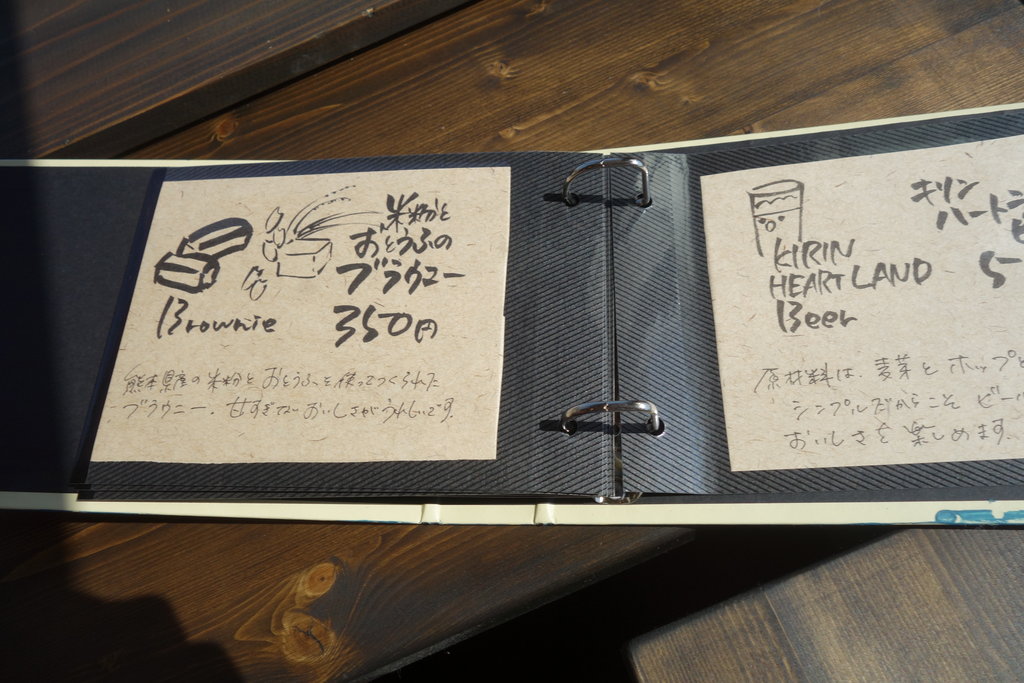 米粉と
おとうふの
ブラウニー
Brownie
350円
熊本県産の米粉とおとうふを使ってつくられた
ブラウニー。甘すぎないおいしさがうれしいです。
キリン
ハートラ
KIRIN
HEARTLAND
Beer
5
原材料は、麦芽とホップと
シンプルだからこそビー
おいしさを楽しめます。